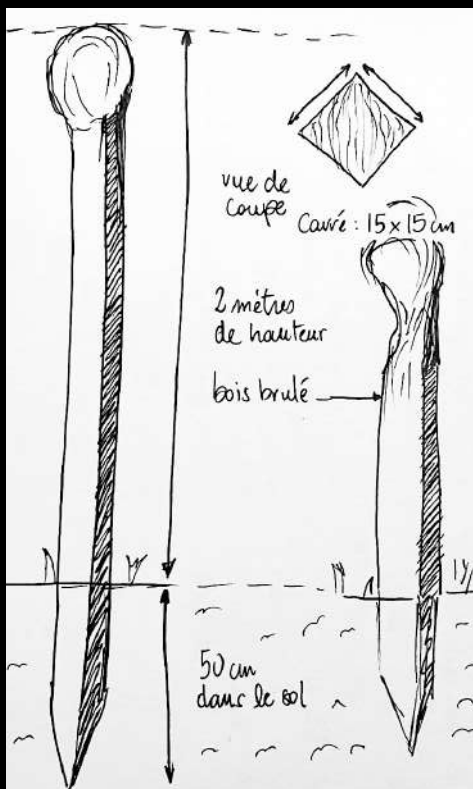 vue de
coupe
Carré : 15 x 15 cm
2 mètres
de hauteur
bois brulé
50 cm
dans le sol